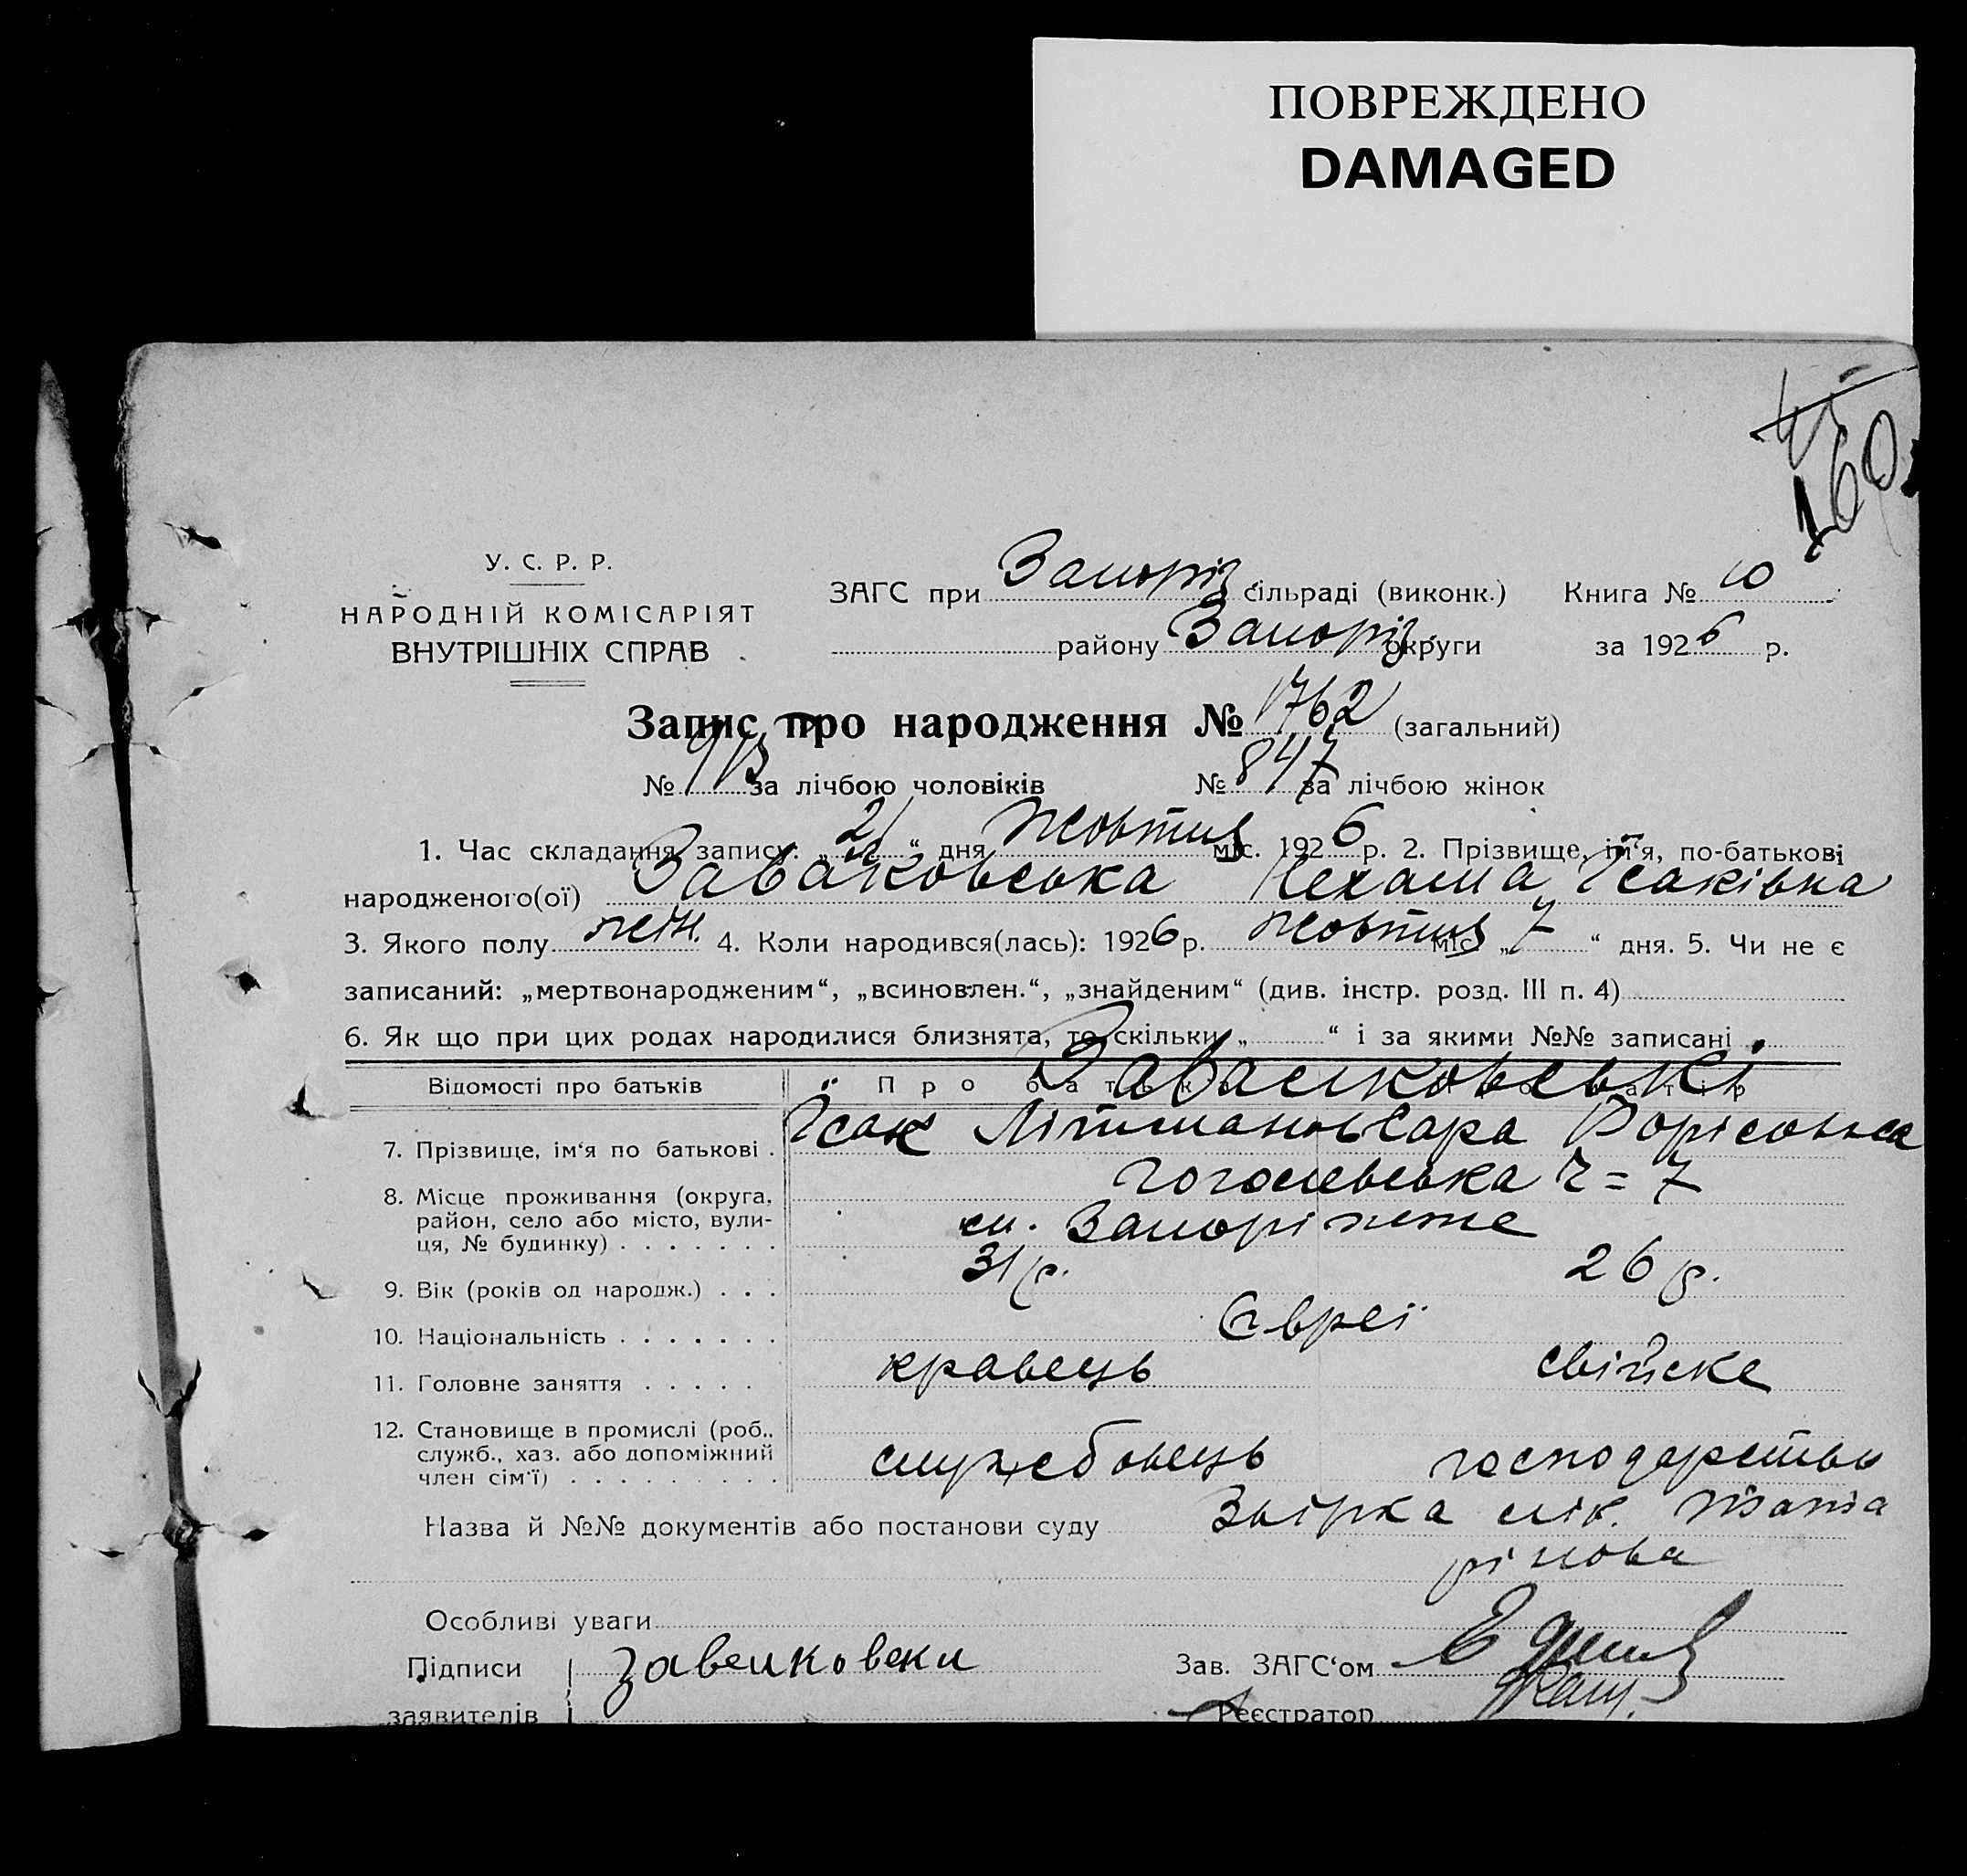 ПОВРЕЖДЕНО
DAMAGED
160
У. С. Р. Р.
НАРОДНІЙ КОМІСАРІЯТ
ВНУТРІШНІХ СПРАВ
ЗАГС при Запоріз. сільраді (виконк.) Книга № 10
району Запоріз. округи за 1926 р.
Запис про народження № 1762 (загальний)
№ 915 за лічбою чоловіків № 847 за лічбою жінок
1. Час складання запису: „21“ дня Жовтня міс. 1926 р. 2. Прізвище, ім'я, по-батькові
народженого(ої) Ісаківна
3. Якого полу жін. 4. Коли народився(лась): 1926 р. Жовтня міс. „7“ дня. 5. Чи не є
записаний: „мертвонародженим“, „всиновлен.“, „знайденим“ (див. інстр. розд. III п. 4)
6. Як що при цих родах народилися близнята, то скільки „ “ і за якими №№ записані
Відомості про батьків Про батька Про матір
7. Прізвище, ім'я по батькові . Ісак Сара Борісовна
8. Місце проживання (округа, Гоголевська ч = 7
район, село або місто, вули- м. Запоріжже
ця, № будинку) . . . . . . .
9. Вік (років од народж.) . . . 31 р. 26 р.
10. Національність . . . . . . . Євреї
11. Головне заняття . . . . . кравець свійске
12. Становище в промислі (роб.,
служб., хаз. або допоміжний службовець господарство
член сім'ї) . . . . . . . . .
Назва й №№ документів або постанови суду
Особливі уваги
Підписи Зав. ЗАГС'ом
заявителів Реєстратор